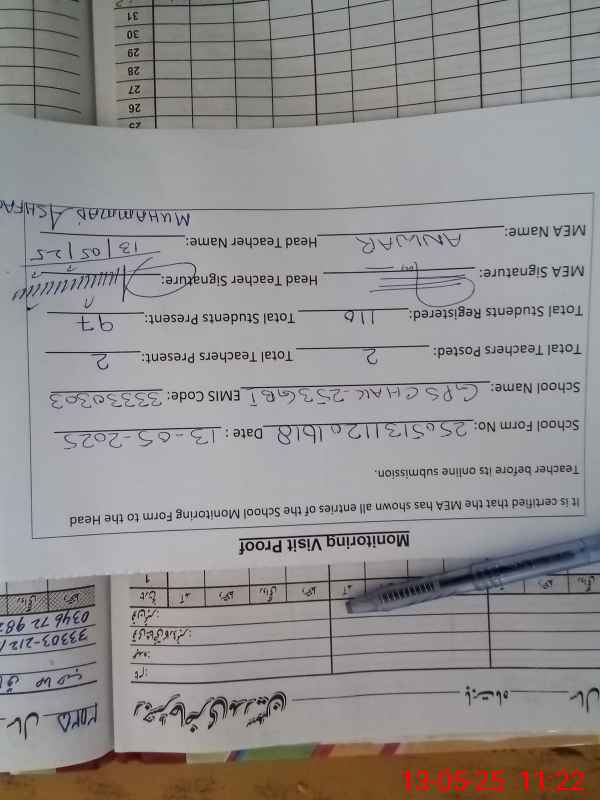 رجسٹر حاضری مدرسین بابت ماہ سال
سال
نام:
عہدہ:
33303-212
0346 72 982
تاریخ آمد دستخط روانگی دستخط آمد
1
Monitoring Visit Proof
It is certified that the MEA has shown all entries of the School Monitoring Form to the Head
Teacher before its online submission.
School Form No: 25051311201618 Date : 13-05-2025
School Name: GPS CHAK-253GB I EMIS Code: 33330303
Total Teachers Posted: 2 Total Teachers Present: 2
Total Students Registered: 110 Total Students Present: 97
MEA Signature: Head Teacher Signature:
13/05/25
MEA Name: ANWAR Head Teacher Name: MUHAMMAD ASHFA
25
26
27
28
29
30
31
13-05-25 11:22